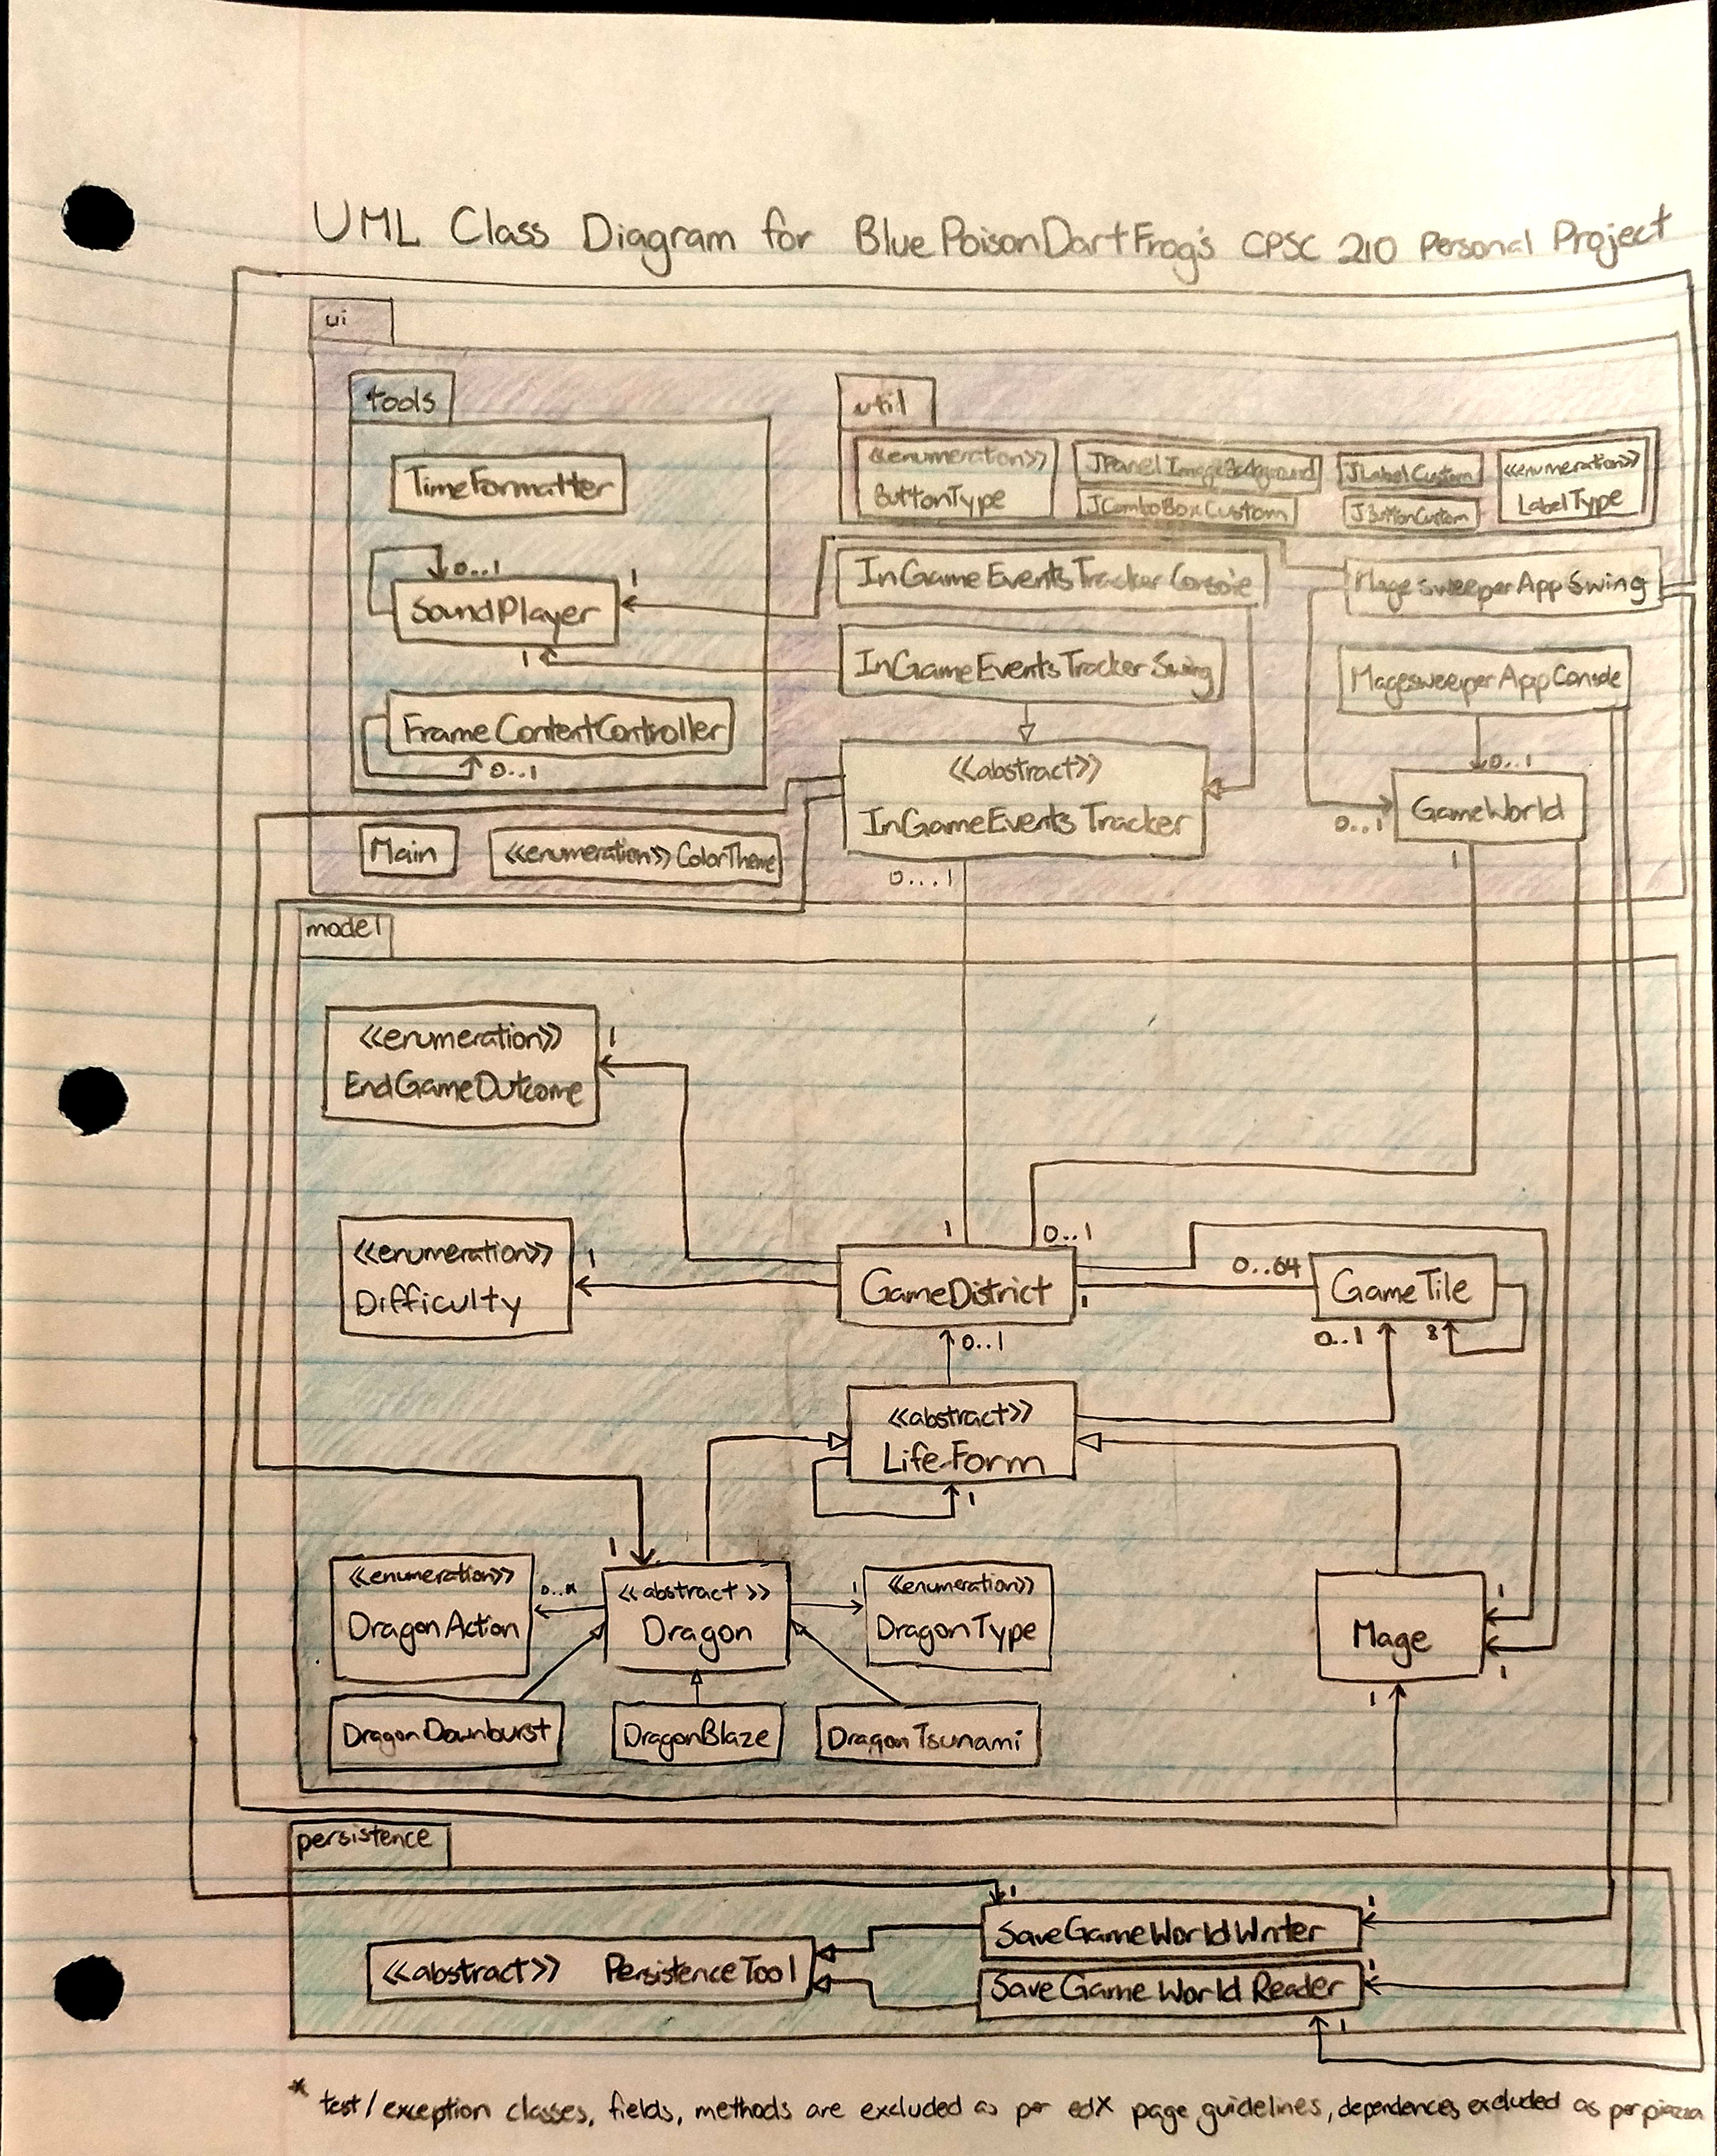 UML Class Diagram for BluePoisonDartFrog's CPSC 210 Personal Project
ui
tools
util
TimeFormatter
<<enumeration>>
ButtonType
JPanelImageBackground
JComboBoxCustom
JLabelCustom
JButtonCustom
<<enumeration>>
LabelType
0..1
SoundPlayer
1
1
InGameEventsTrackerConsole
MagesweeperAppSwing
InGameEventsTrackerSwing
MagesweeperAppConsole
FrameContentController
0..1
<<abstract>>
InGameEventsTracker
0..1
GameWorld
0..1
Main
<<enumeration>> ColorTheme
0...1
1
model
<<enumeration>>
EndGameOutcome
1
<<enumeration>>
Difficulty
1
1
0..1
GameDistrict
1
0..64
GameTile
0..1
8
0..1
<<abstract>>
LifeForm
1
1
<<enumeration>>
DragonAction
0..*
<<abstract>>
Dragon
1
<<enumeration>>
DragonType
Mage
1
1
1
DragonDownburst
DragonBlaze
DragonTsunami
persistence
1
SaveGameWorldWriter
1
<<abstract>> PersistenceTool
SaveGameWorldReader
1
1
* test/exception classes, fields, methods are excluded as per edX page guidelines, dependences excluded as per piazza